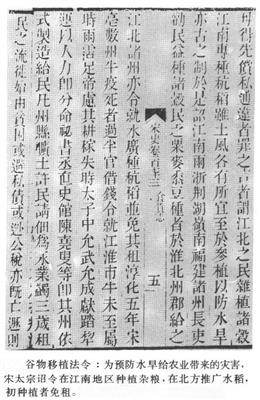 毋得先償私逋違者罪之言者謂江北之民雜植諸穀
江南專種秔稻雖土風各有所宜至於參植以防水旱
亦古之制於是詔江南兩浙荊湖嶺南福建諸州長吏
勸民益種諸穀民乏粟麥黍豆種者於淮北州郡給之
宋史卷百七十三 食貨志 五
江北諸州亦令就水廣種秔稻並免其租淳化五年宋
亳數州牛疫死者過半官借錢令就江淮市牛未至屬
時雨霑足帝慮其耕稼失時太子中允武允成獻踏犂
運以人力即分命祕書丞直史館陳堯叟等即其州依
式製造給民凡州縣曠土許民請佃為永業蠲三歲租
民之流徙始由貧困或避私債或逃公稅亦既亡遯則
谷物移植法令：为预防水旱给农业带来的灾害，
宋太宗诏令在江南地区种植杂粮，在北方推广水稻，
初种植者免租。